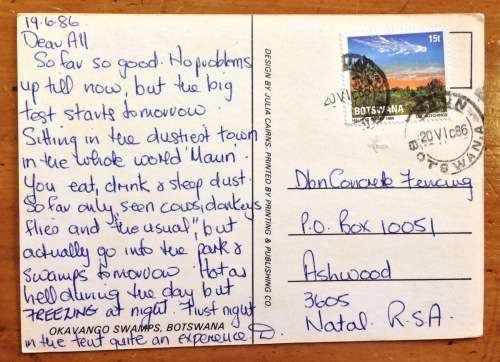 19.6.86
Dear All
So far so good. No problems
up till now, but the big
test starts tomorrow.
Sitting in the dustiest town
in the whole world 'Maun'.
You eat, drink & sleep dust.
So far only seen cows, donkeys
flies and "the usual", but
actually go into the park &
swamps tomorrow. Hot as
hell during the day but
FREEZING at night. First night
in the tent quite an experience D.
OKAVANGO SWAMPS, BOTSWANA
DESIGN BY JULIA CAIRNS. PRINTED BY PRINTING & PUBLISHING CO.
15t
BOTSWANA
20 VI 86
20 VI 86
BOTSWANA
Dbn Concrete Fencing
P.O. Box 10051
Ashwood
3605
Natal. R.S.A.